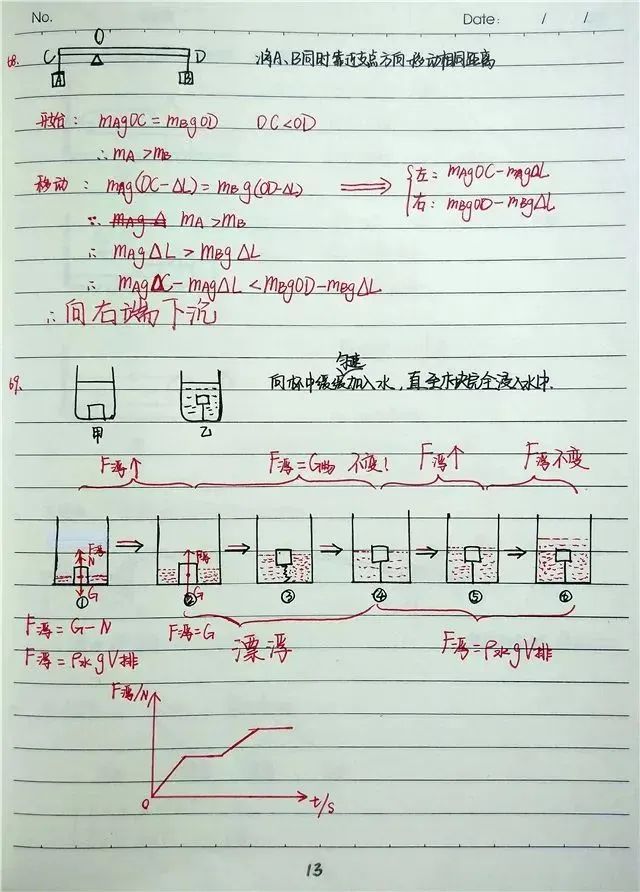 No. Date: / /
68. C O D A B 将A、B同时靠近支点方向移动相同距离
开始: mAgOC=mBgOD OC<OD
∴mA>mB
移动: mAg(OC-ΔL)=mBg(OD-ΔL) ⟹ 左: mAgOC-mAgΔL
右: mBgOD-mBgΔL
∵ mAgΔ mA>mB
∴ mAgΔL>mBgΔL
∴ mAgOC-mAgΔL<mBgOD-mBgΔL
∴向右端下沉
关键
69. 向杯中缓缓加入水,直至木块完全浸入水中.
甲 乙
F浮↑ F浮=G物 不变! F浮↑ F浮不变
F浮 N G ⇒ F浮 G → → → →
① ② ③ ④ ⑤ ⑥
F浮=G-N F浮=G 漂浮 F浮=ρ水gV排
F浮=ρ水gV排
F浮/N
0 t/s
13